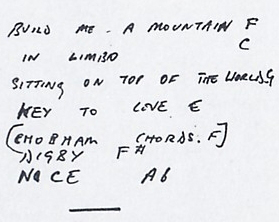 BUILD ME A MOUNTAIN F
C
IN LIMBO
SITTING ON TOP OF THE WORLD G
KEY TO LOVE E
[CHOBHAM CHORDS. F]
DIGBY F#
NICE Ab